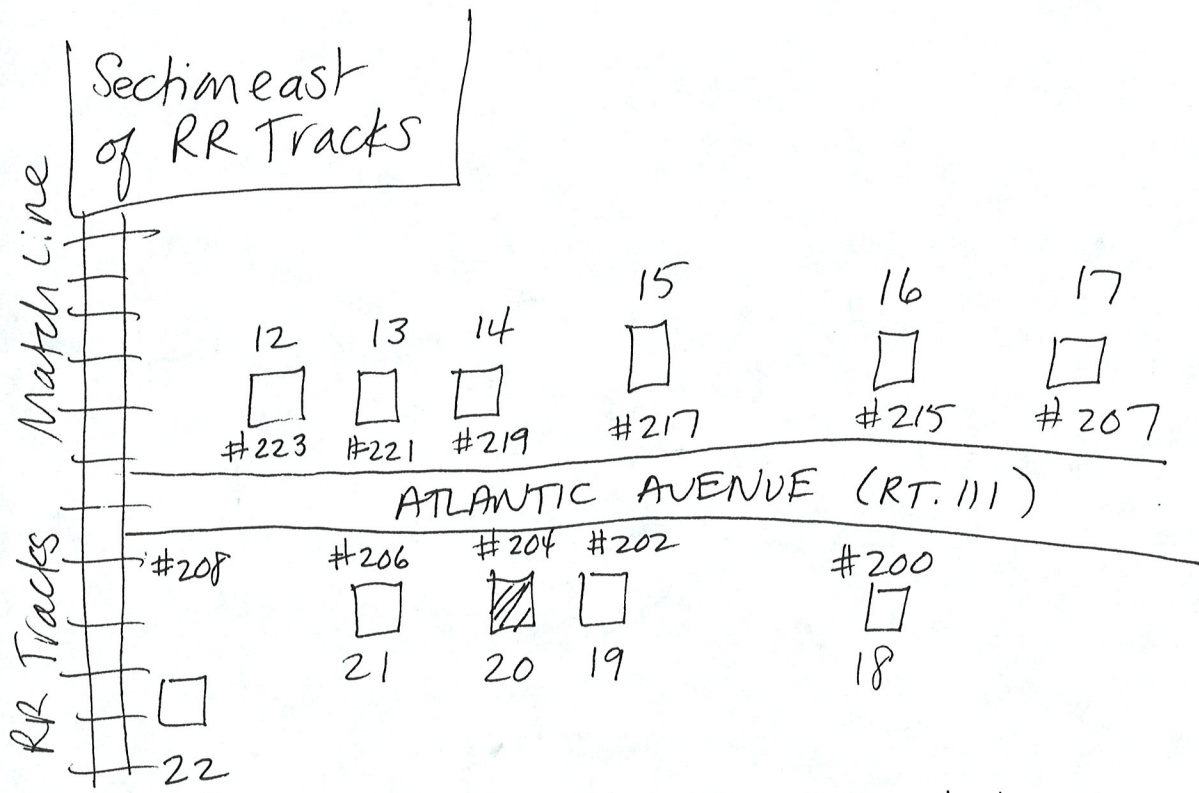 Section east
of RR Tracks
Match Line
RR Tracks
12 13 14 15 16 17
#223 #221 #219 #217 #215 #207
ATLANTIC AVENUE (RT. 111)
#208 #206 #204 #202 #200
21 20 19 18
22